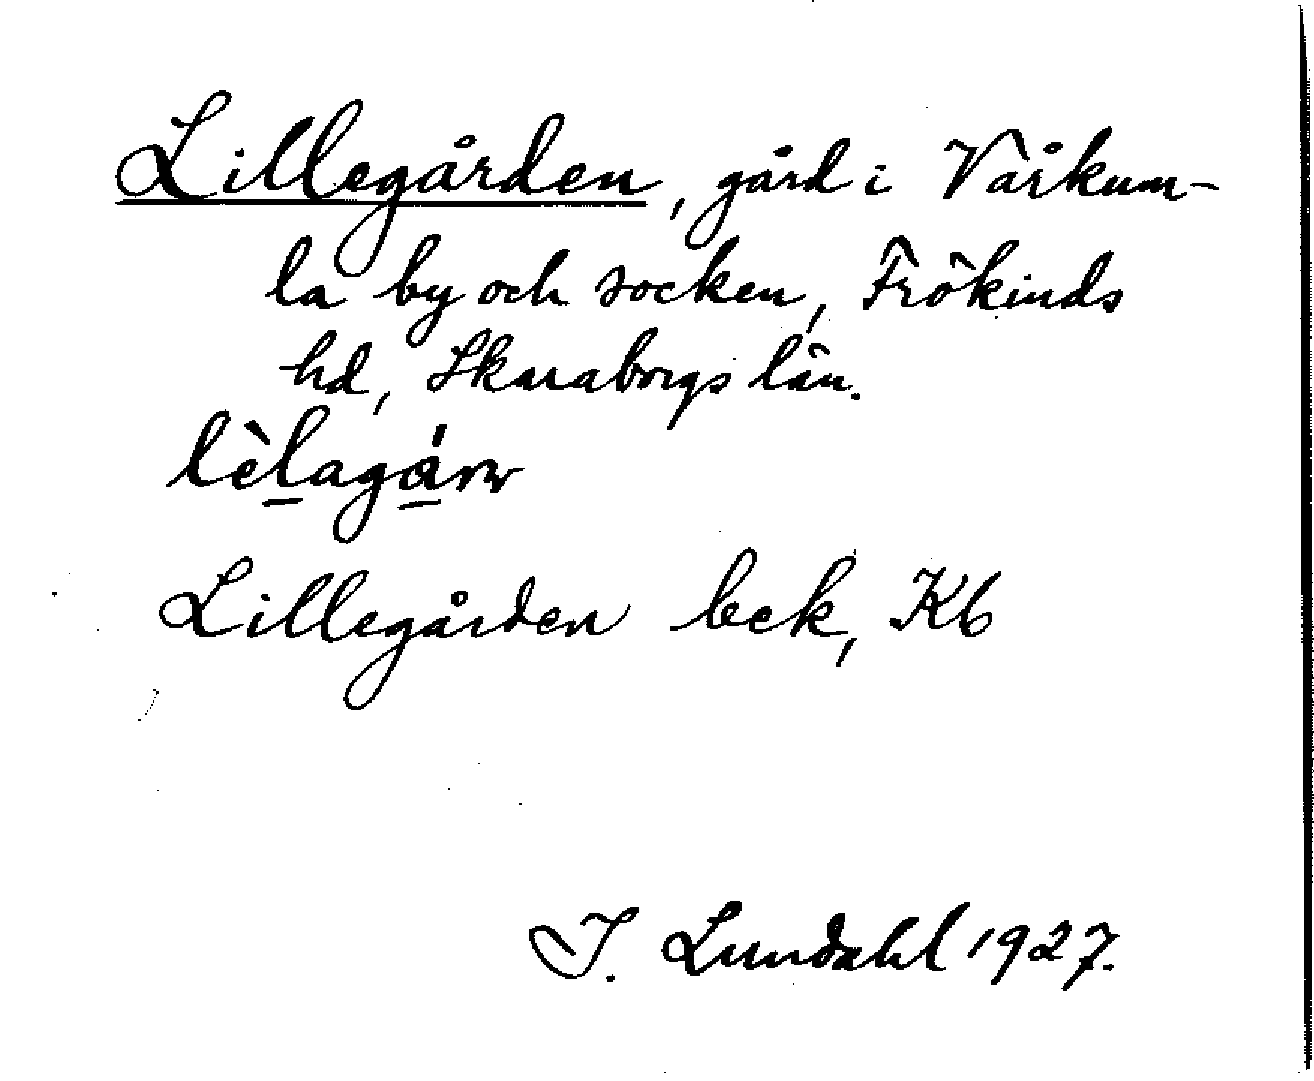 Lillegården, gård i Vårkum-
la by och socken, Frökinds
hd, Skaraborgs län.
lèlagá
Lillegården bek, Kb
I. Lundahl 1927.